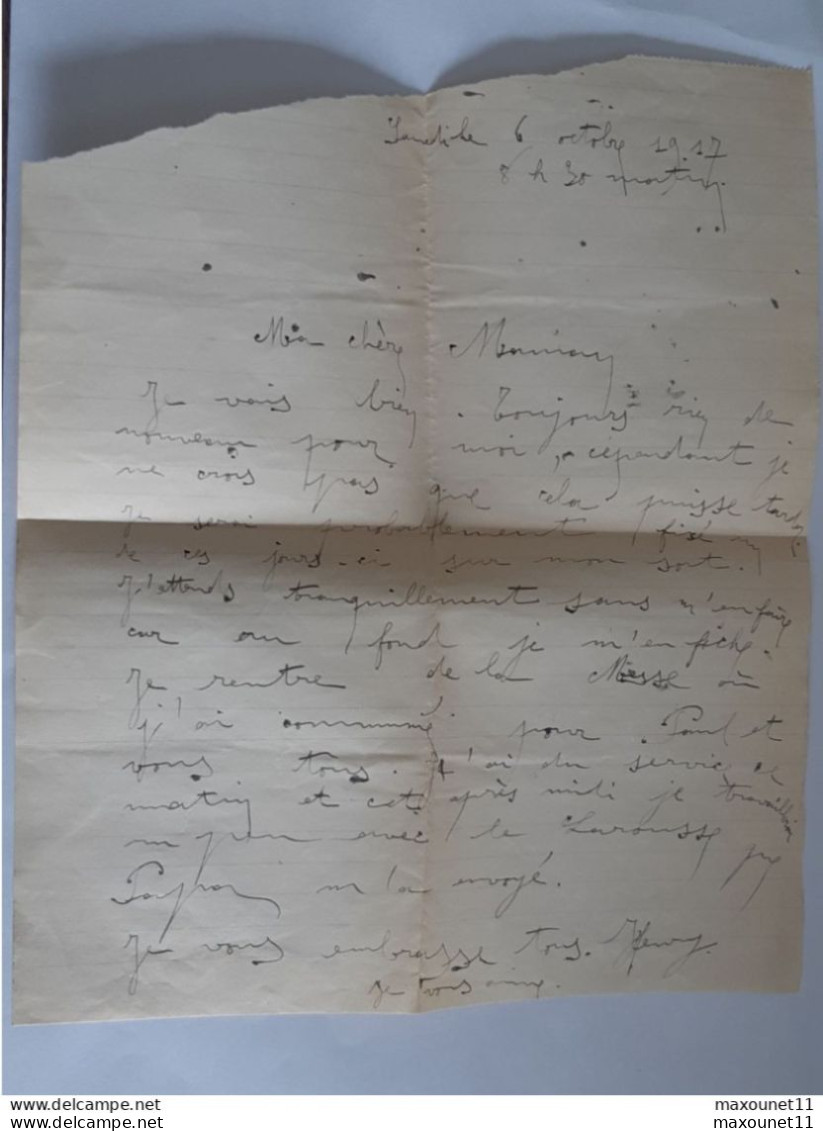 Samedi le 6 octobre 1917
8 h 30 matin
Ma chère Maman
Je vais bien. Toujours rien de
nouveau pour moi, cependant je
ne crois pas que cela puisse tarder
Je serai probablement fixé un
de ces jours-ci sur mon sort.
J'attends tranquillement sans m'en faire
car au fond je m'en fiche.
Je rentre de la Messe où
j'ai communié pour Paul et
vous tous. J'ai du service ce
matin et cet après midi je travaillerai
un peu avec le Larousse que
Papa m'a envoyé.
Je vous embrasse tous. Henry.
Je vous aime.
maxounet11
maxounet11